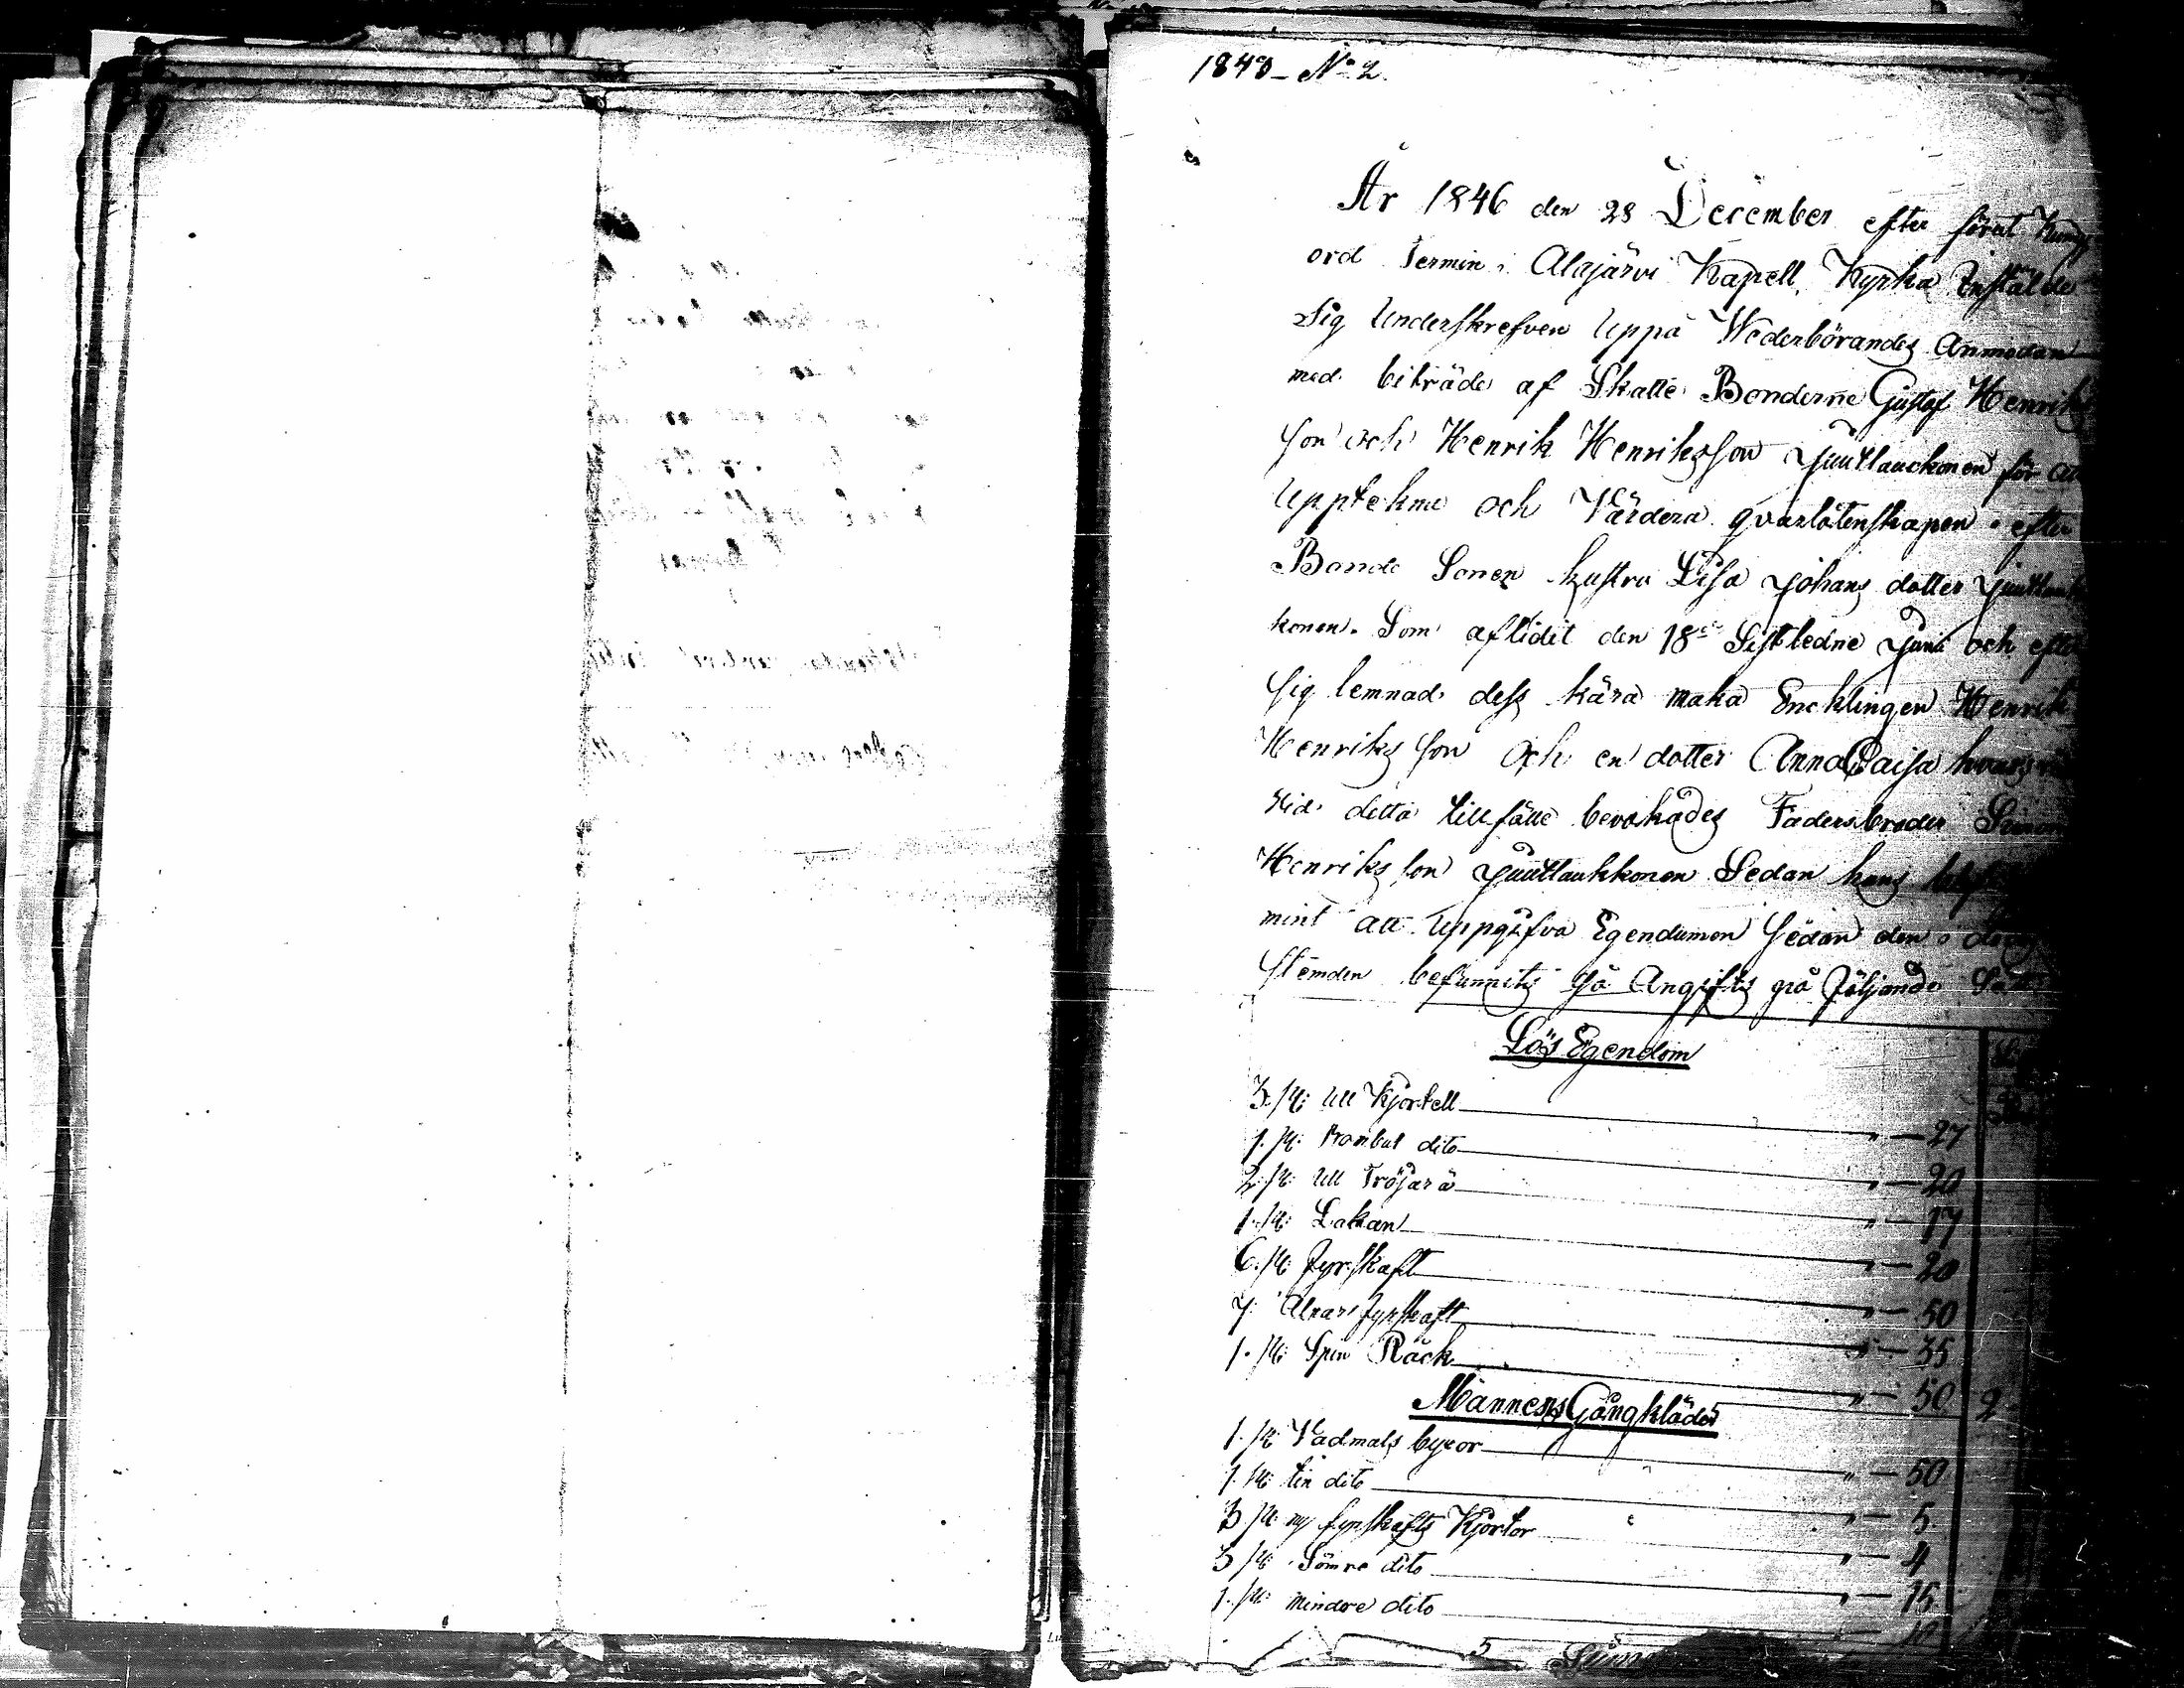 1848 - No 2.
År 1846 den 28 December efter förut
ord Termin i Alajärvi Kapell Kyrka Instälde
Sig Underskrefven Uppå Wederbörandes Anmodan
med biträde af Skatte Bönderne Gustaf Henriks
son och Henrik Henriksson Juutlauckonen för
Upptekna och Värdera qvarlåtenskapen efter
Bonde Sonen hustru Lisa Johans dotter
konen. Som aflidit den 18de Sistledne Juni och efter
sig lemnad dess kära maka Encklingen Henrik
Henriksson Och en dotter Anna Caisa
vid detta tillfälle bevakades Fadersbroder Simon
Henriksson Juutlaukkonen Sedan hans
mint att Uppgifva Egendomen sedan den i
stunden befunnits Så Angifts på följande
Lös Egendom
3. st: Ull Kjortell " — 27
1. st: Bombul dito " — 20
2. st: Ull Tröjara " — 17
1. st: Lakan " — 20
6. st: Fyrskaft " — 50
7. Alnar fyrskaft " — 35
1. st: Spin Råck " — 50 2
Mannens Gångkläder
1. st: Vadmals byxor " — 50
1. st: lin dito " — 5
3 st: ny fyrskafts Kjortor " — 4
3 st: Sömre dito " — 15
1. st: mindre dito
5